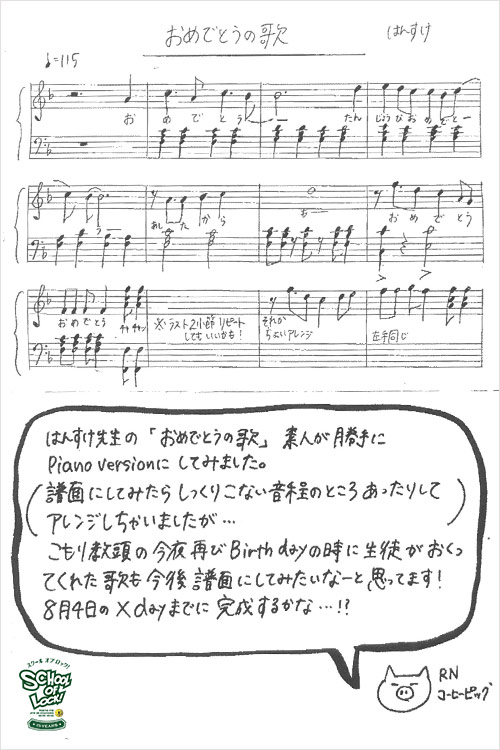 おめでとうの歌
はんすけ
♩=115
お め で と う ー たん じょうび おめでと ー
う ー あし た から も ー おめでとう
おめでとう チャ チャン ※ラスト2小節リピート それか 左手同じ
してもいいかも! ちょいアレンジ
はんすけ先生の「おめでとうの歌」素人が勝手に
Piano versionにしてみました。
(譜面にしてみたらしっくりこない音程のところあったりして
アレンジしちゃいましたが…)
こもり教頭の今夜再びBirth dayの時に生徒がおくっ
てくれた歌も今後譜面にしてみたいなーと思ってます!
8月4日のXdayまでに完成するかな…!?
RN
コーヒーピッグ
スクール オブ ロック!
SCHOOL
OF
LOCK!